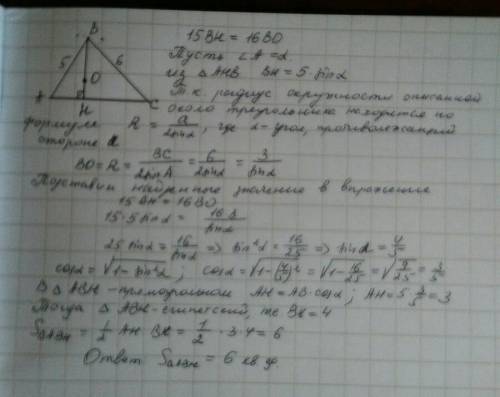 B
5
6
O
A
H
C
15BH = 16BO
Пусть ∠A = α
из △AHB BH = 5·sinα
Т.к. радиус окружности описанной
около треугольника находится по
формуле R = a/2sinα, где α - угол, противолежащий
стороне a
BO = R = BC/2sinA = 6/2sinα = 3/sinα
Подставим найденные значения в выражение
15BH = 16BO
15·5sinα = 16·3/sinα
25sinα = 16/sinα => sin²α = 16/25 => sinα = 4/5
cosα = √1-sin²α ; cosα = √1-(4/5)² = √1-16/25 = √9/25 = 3/5
В △ABH - прямоугольном AH = AB·cosα ; AH = 5·3/5 = 3
Тогда △ABH - египетский, т.е. BH = 4
S△ABH = 1/2 AH·BH = 1/2·3·4 = 6
Ответ S△ABH = 6 кв.ед.